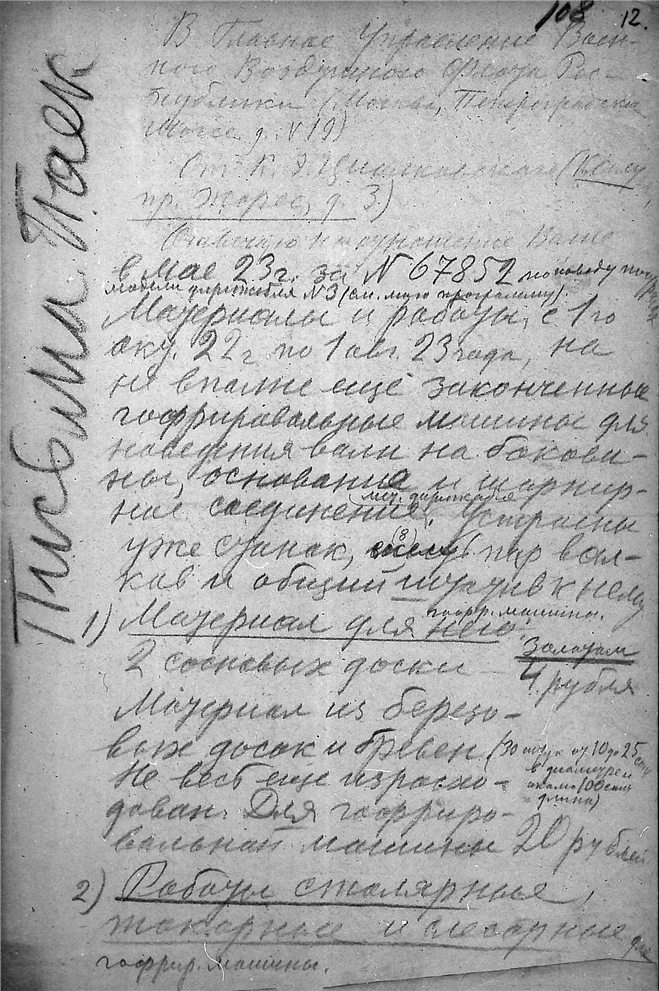 108 12.
Письма. Паек
В Главное Управление Воен-
ного Воздушного Флота Рес-
публики (Москва, Петроградское
шоссе д. N 19)
От К. Э. Циолковского (Калуга,
пр. Жорес, д. 3)
Отвечаю на отношение Ваше
в мае 23 г. за N 67852 по поводу
модели дирижабля N 3 (см. мою программу).
Материалы и работы, с 1 го
окт. 22 г по 1 авг. 23 года, на
не вполне еще законченные
гофрировальные машины для
наведения волн на боковины,
основания и шарнир-
ные соединения. Устроены
уже станок, (8) пар вал-
ков и общий штатив к нему
1) Материал для него гофр. машины.
Золотом
2 сосновых доски 4 рубля
Материал из березо-
вых досок и бревен (30 штук от 10 до 25 сан.
в диаметре и
около 100 сан.
длина)
Не весь еще израсхо-
дован. Для гофриро-
вальной машины 20 рублей
2) Работы столярные,
токарные и слесарные для
гофрир. машины.